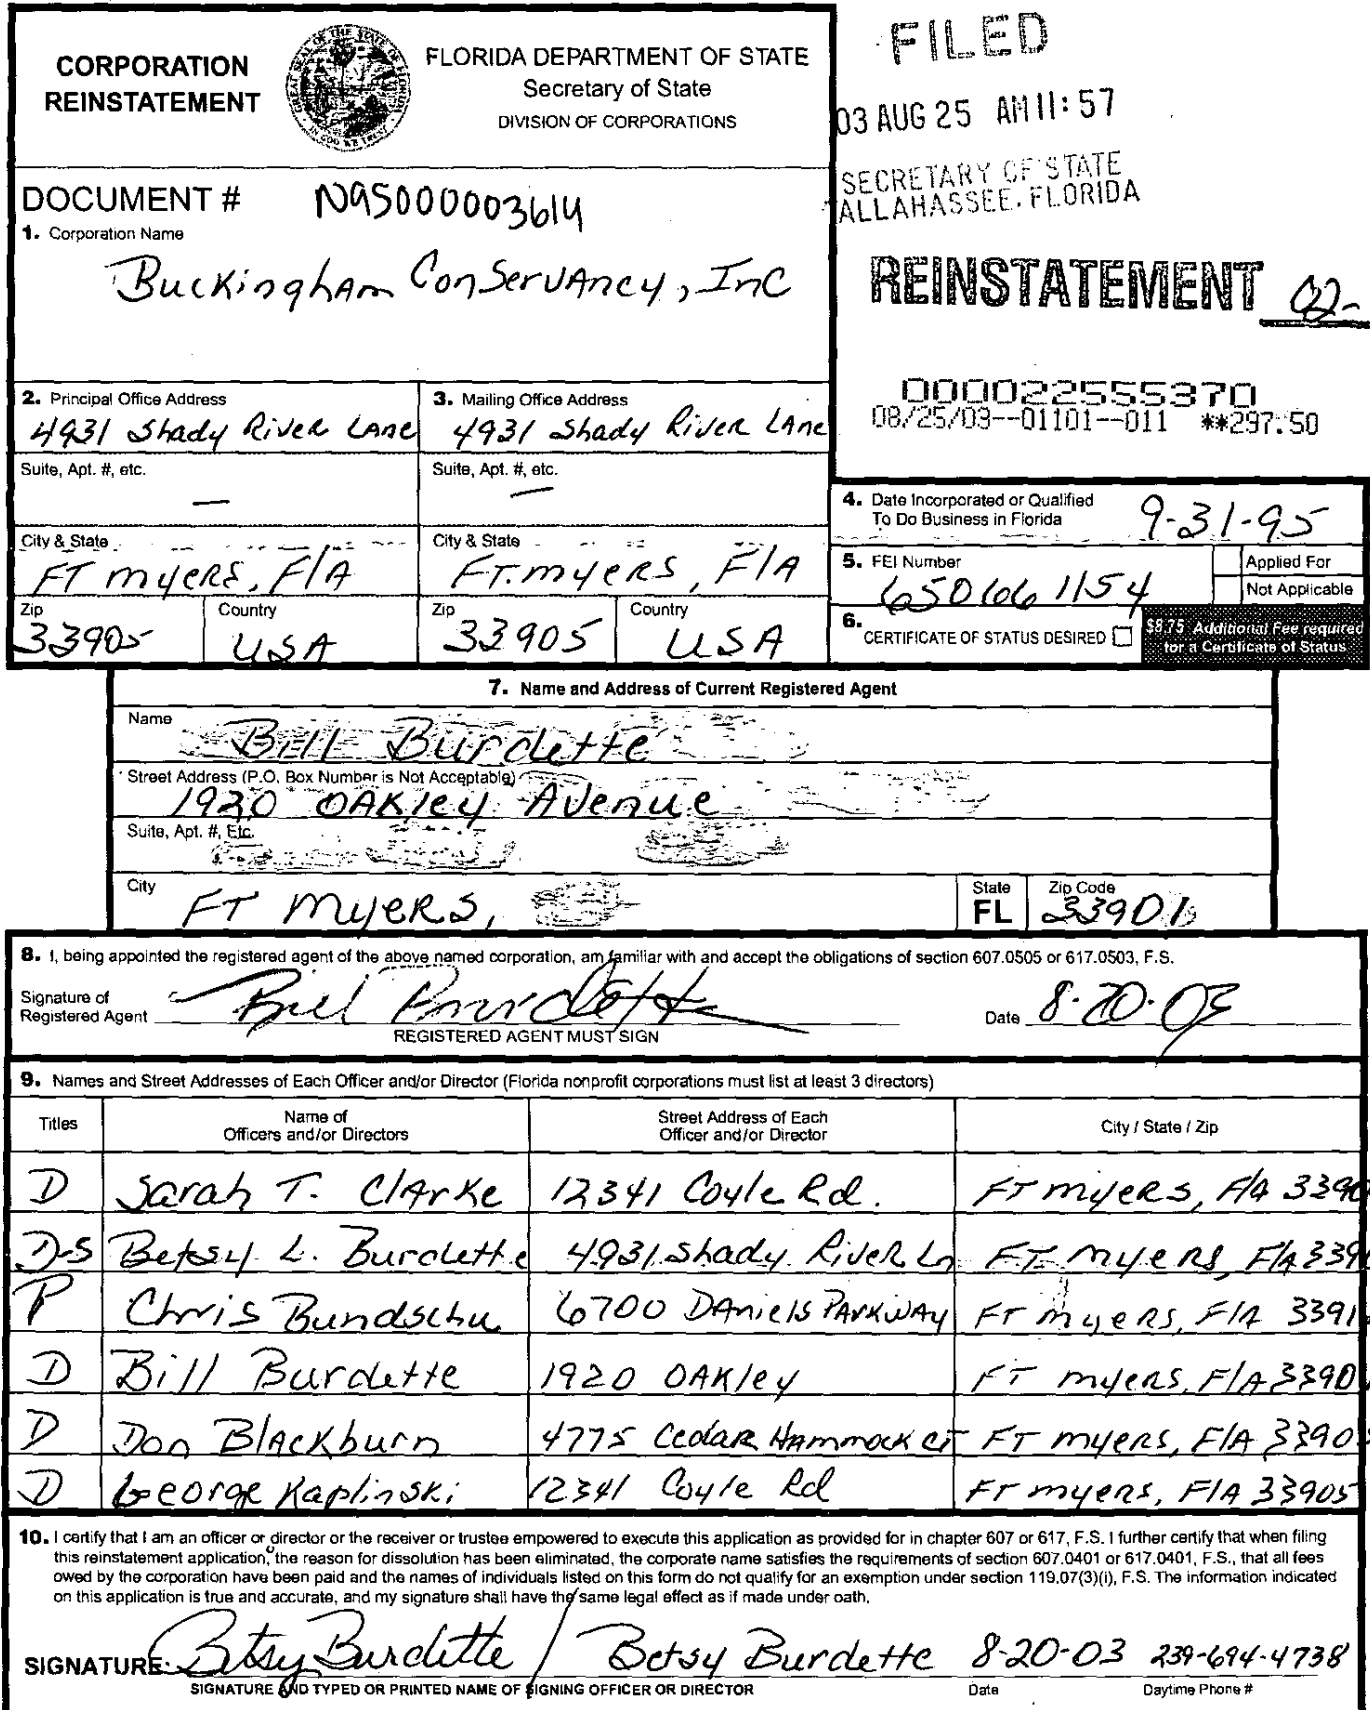 CORPORATION
REINSTATEMENT
FLORIDA DEPARTMENT OF STATE
Secretary of State
DIVISION OF CORPORATIONS
FILED
03 AUG 25 AM 11:57
SECRETARY OF STATE
ALLAHASSEE, FLORIDA
DOCUMENT # N95000003614
1. Corporation Name
Buckingham Conservancy, Inc
REINSTATEMENT 02-
000022555370
08/25/03--01101--011 **297.50
2. Principal Office Address
4931 Shady River Lane
3. Mailing Office Address
4931 Shady River Lane
Suite, Apt. #, etc.
—
Suite, Apt. #, etc.
—
City & State
FT myers, FlA
City & State
FT. myers, FlA
Zip
33905
Country
USA
Zip
33905
Country
USA
4. Date Incorporated or Qualified
To Do Business in Florida 9-31-95
5. FEI Number
650661154
Applied For
Not Applicable
6. CERTIFICATE OF STATUS DESIRED
$8.75 Additional Fee required
for a Certificate of Status
7. Name and Address of Current Registered Agent
Name
Bill Burdette
Street Address (P.O. Box Number is Not Acceptable)
1920 OAKley Avenue
Suite, Apt. #, Etc.
City
FT myers,
State
FL
Zip Code
33901
8. I, being appointed the registered agent of the above named corporation, am familiar with and accept the obligations of section 607.0505 or 617.0503, F.S.
Signature of
Registered Agent Bill Burdette
Date 8-20-03
REGISTERED AGENT MUST SIGN
9. Names and Street Addresses of Each Officer and/or Director (Florida nonprofit corporations must list at least 3 directors)
Titles
Name of
Officers and/or Directors
Street Address of Each
Officer and/or Director
City / State / Zip
D Sarah T. Clarke 12341 Coyle Rd. FT myers, FlA 3390
D-S Betsy L. Burdette 4931 Shady River Ln FT myers, FlA 339
P Chris Bundschu 6700 Daniels Parkway FT myers, FlA 3391
D Bill Burdette 1920 OAKley FT myers, FlA 3390
D Don Blackburn 4775 Cedar Hammock CT FT myers, FlA 3390
D George Kaplinski 12341 Coyle Rd FT myers, FlA 33905
10. I certify that I am an officer or director or the receiver or trustee empowered to execute this application as provided for in chapter 607 or 617, F.S. I further certify that when filing
this reinstatement application, the reason for dissolution has been eliminated, the corporate name satisfies the requirements of section 607.0401 or 617.0401, F.S., that all fees
owed by the corporation have been paid and the names of individuals listed on this form do not qualify for an exemption under section 119.07(3)(i), F.S. The information indicated
on this application is true and accurate, and my signature shall have the same legal effect as if made under oath.
SIGNATURE: Betsy Burdette / Betsy Burdette 8-20-03 239-694-4738
SIGNATURE AND TYPED OR PRINTED NAME OF SIGNING OFFICER OR DIRECTOR Date Daytime Phone #